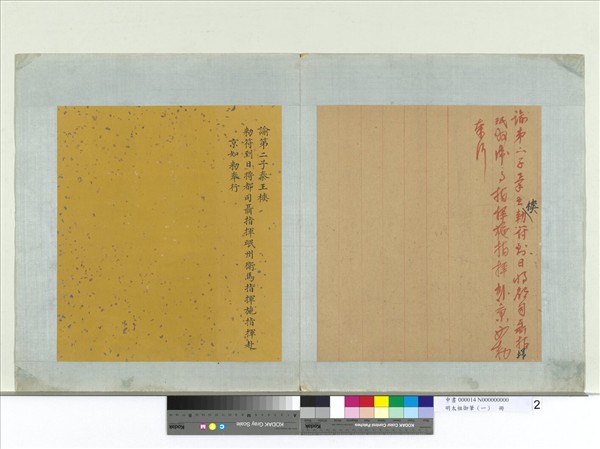 諭第二子秦王樉勅符到日將都司聶指揮
岷州衛馬指揮施指揮赴京如勅
奉行
諭第二子秦王樉
勅符到日將都司聶指揮岷州衛馬指揮施指揮赴
京如勅奉行
KODAK Gray Scale
KODAK Color Control Patches
中書 000014 N000000000
明太祖御筆（一） 冊
2